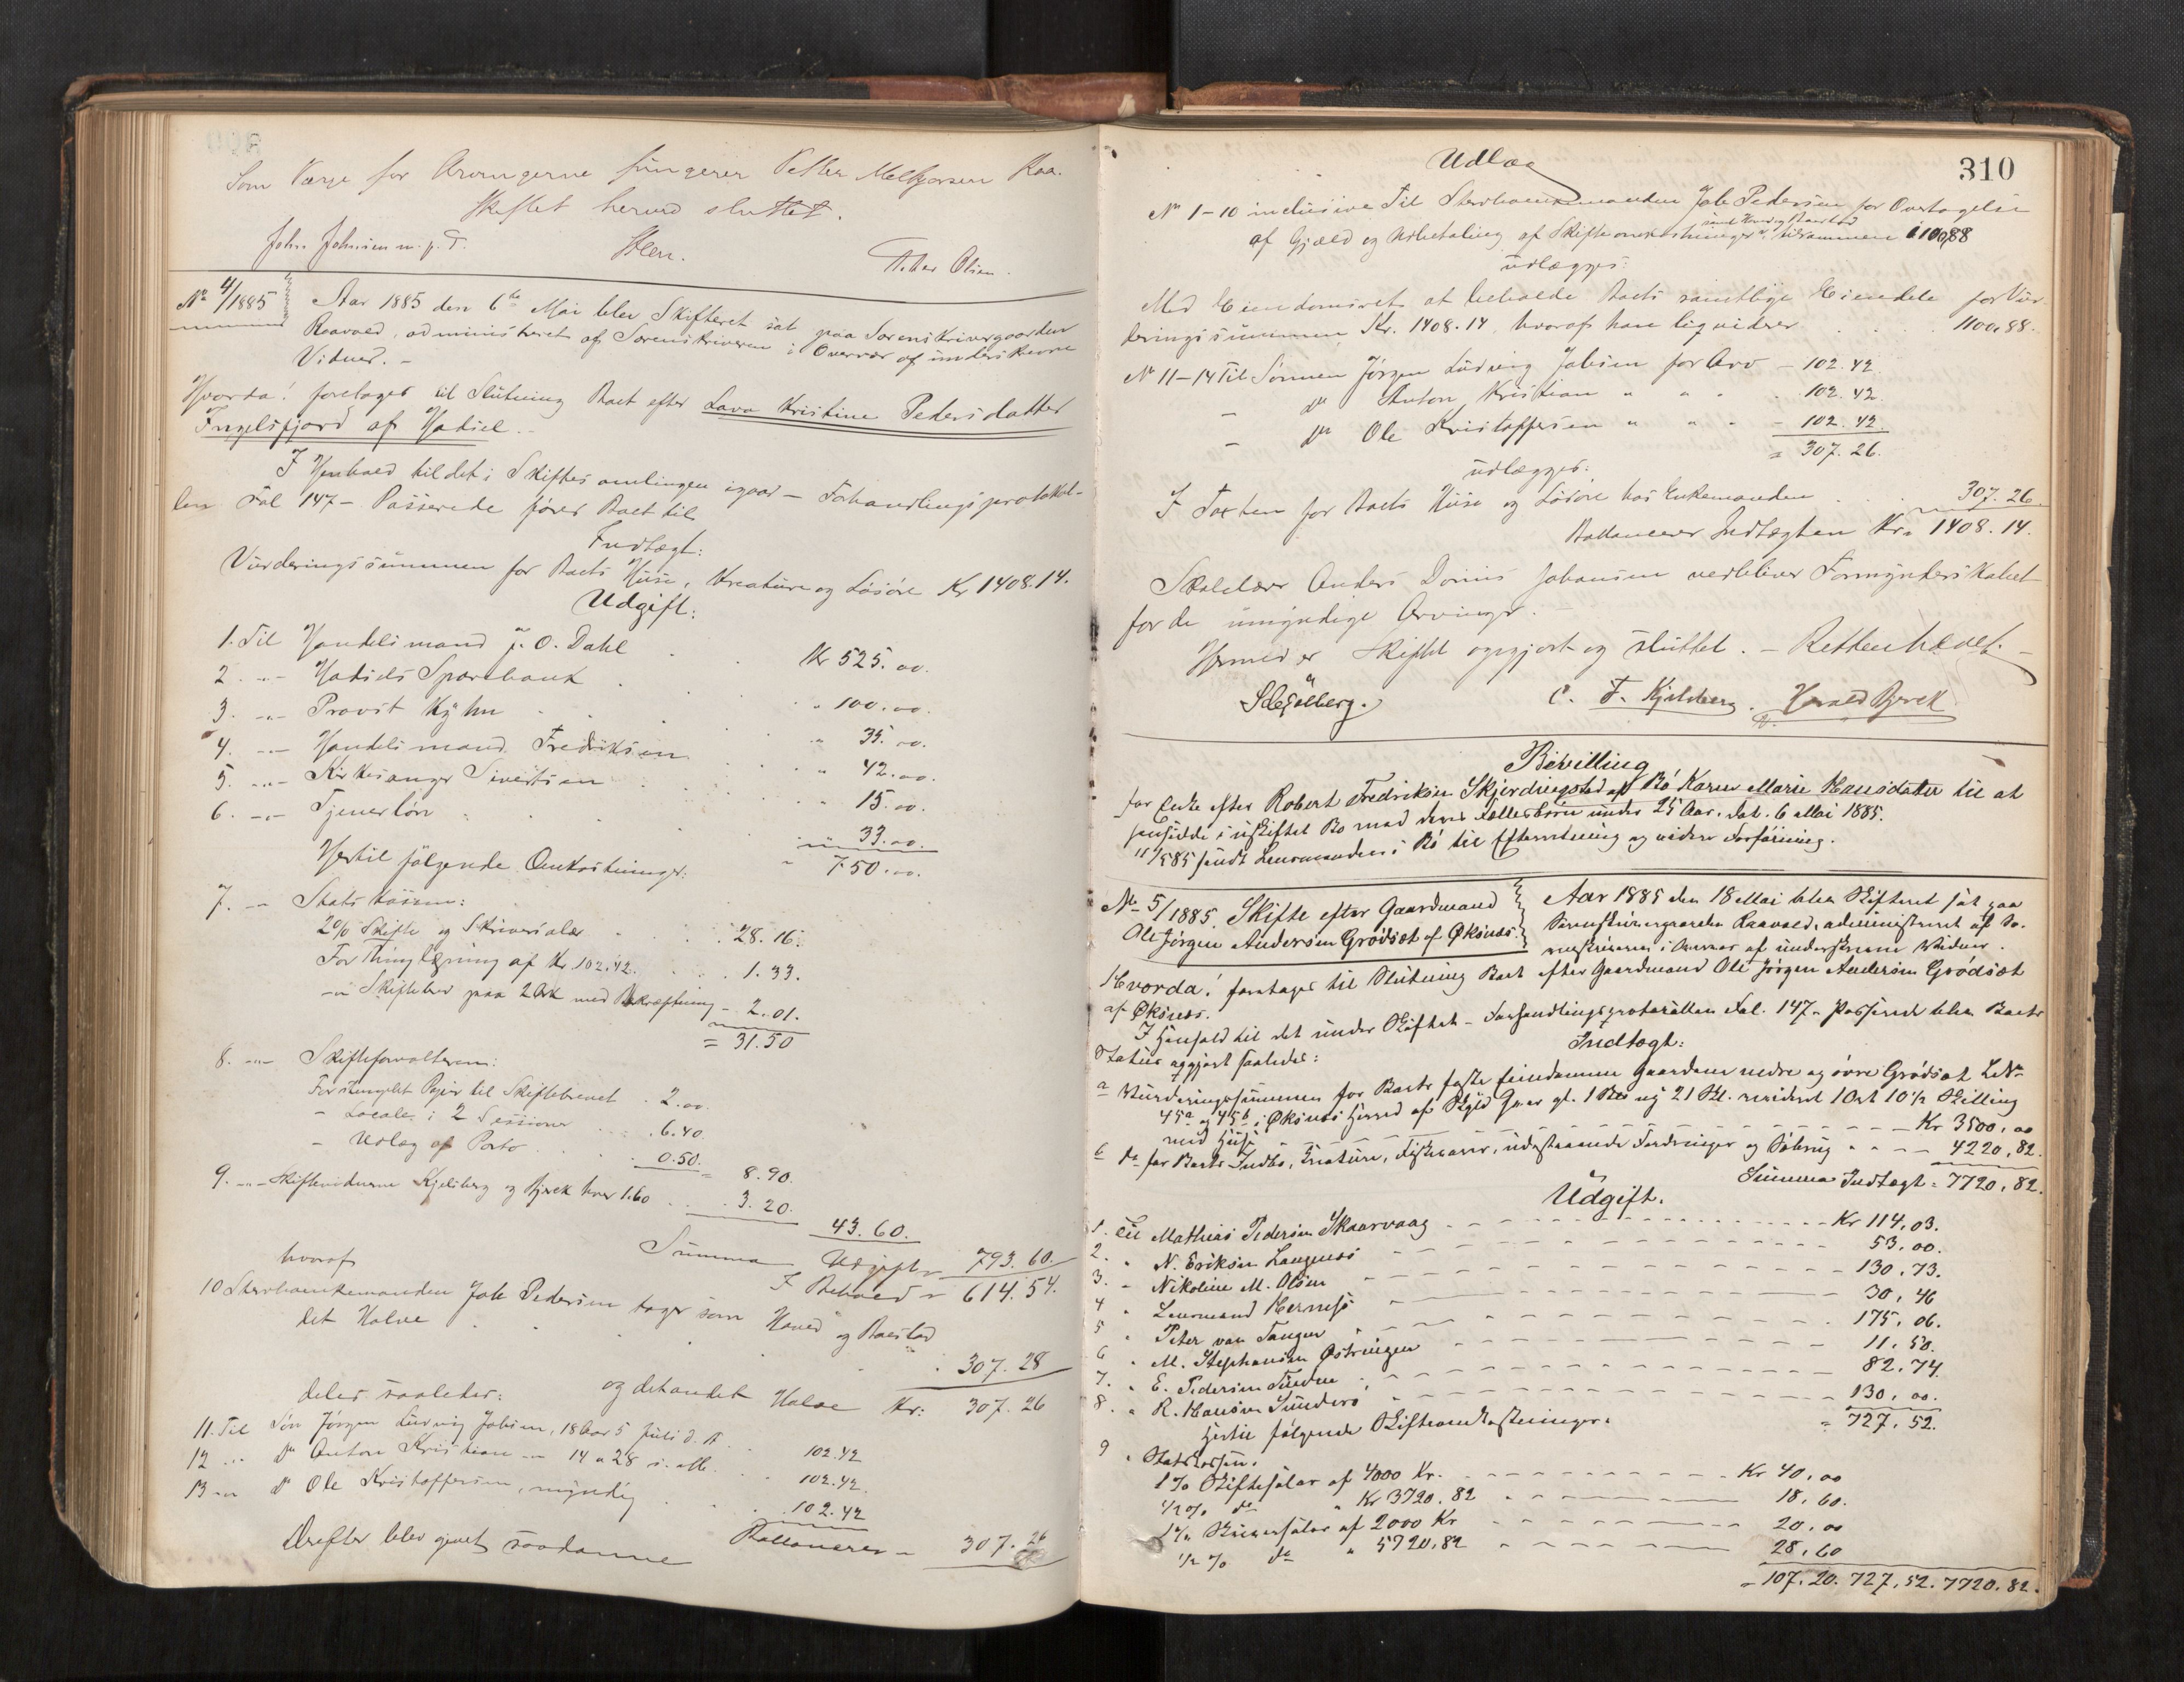 Som Værge for Arvingerne fungerer Petter Meltzersen Raa.
Skiftet herved sluttet.
John Johnsen m. p. P. Steen. Peter Olsen.
No 4/1885 Aar 1885 den 6te Mai blev Skifteret sat paa Sorenskrivergaarden
Raavold, administreret af Sorenskriveren i Overvær af underskrevne
Vidner. -
Hvorda! foretages til Slutning Boet efter Lava Kristine Pedersdatter
Ingelsfjord af Hadsel.
I Henhold til det i Skiftesamlingen igaar - Forhandlingsprotokol-
len Fol 147 - Passerede føres Boet til
Indtægt:
Vurderingssummen for Boets Huse, Kreature og Løsøre Kr 1408.14.
Udgift:
1. Til Handelsmand J. O. Dahl Kr 525.00.
2. -"- Hadsels Sparebank " 100.00.
3. -"- Provst Kyhn " 35.00.
4. -"- Handelsmand Fredriksen " 42.00.
5. -"- Kirkesanger Sivertsen " 15.00
6. -"- Tjenerløn 33.00.
" 750.00.
Hertil følgende Omkostninger:
7. -"- Statskassen:
2% Skifte og Skriversalær 28.16.
For Thinglæsning af Kr 102.42. 1.33.
-" Skiftebrev paa 2 Ark med Bekræftning - 2.01.
= 31.50
8. -"- Skifteforvalteren:
For stemplet Papir til Skiftebrevet 2.00.
- Locale i 2 Sessioner 6.40
- Udlæg af Porto 0.50. = 8.90.
9. -"- Skiftevidnerne Kjelsberg og Bjerck hver 1.60 3.20.
43.60.
Summa Udgift = 793.60.
I Behold = 614.54.
hvoraf
10 Stervboenkemanden Job Pedersen tager som Hoved og Boeslod
det Halve 307.28
og det andet Halve Kr: 307.26
deles saaledes:
11. Til Søn Jørgen Ludvig Jobsen, 18 Aar 5 Juli d. A. 102.42
12 -"- Do Anton Kristian -"- 14 " 28 s. M. 102.42.
13 -"- Do Ole Kristoffersen, myndig 102.42
Ballancerer = 307.26
Derefter blev gjort saadanne
310
Udlæg
No 1-10 inclusive Til Stervboenkemanden Job Pedersen for Overtagelse
samt Hoved og Boeslod
af Gjæld og Udbetaling af Skifteomkostninger tilsammen 1100,88
udlægges:
Med Eiendomsret at beholde Boets samtlige Eiendele for Vur-
deringssummen Kr. 1408.14, hvoraf han liqviderer 1100,88.
No 11-14 Til Sønnen Jørgen Ludvig Jobsen for Arv - 102.42
- do Anton Kristian " " 102.42.
- do Ole Kristoffersen " " - 102.42.
= 307.26.
udlægges:
I Taxten for Boets Huse og Løsøre hos Enkemanden 307.26
Ballancerer Indtægten Kr. 1408.14.
Skolelærer Anders Dorius Johansen vedbliver Formynderskabet
for de umyndige Arvinger. -
Hermed er Skiftet opgjort og sluttet. - Retten hævet. -
C. F. Kjelsberg. Harald Bjerck
Bevilling
for Enke efter Robert Fredriksen Skjerdingstad af Bø Karen Marie Hansdatter til at
hensidde i uskiftet Bo med deres Fællesbørn under 25 Aar. Dat. 6 Mai 1885.
11/5 85 sendt Lensmanden i Bø til Efterretning og videre Forføining.
No 5/1885. Skifte efter Gaardmand
Ole Jørgen Andersen Grødsæt af Øksnes.
Aar 1885 den 18 Mai blev Skifteret sat paa
Sorenskrivergaarden Raavold, administreret af So-
renskriveren i Overvær af underskrevne Vidner.
Hvorda! foretages til Slutning Boet efter Gaardmand Ole Jørgen Andersen Grødsæt
af Øksnes.
I Henhold til det under Skiftet - Forhandlingsprotocollen Fol. 147 - Passerede blev Boets
Status opgjort saaledes:
Indtægt:
a Vurderingssummen for Boets faste Eiendomme Gaardene nedre og øvre Grødsæt LNo
45a og 45b i Øksnes Herred af Skyld gl. 1 ny 21 revideret 1 Ort 10 1/2 Skilling
med Huse Kr 3500,00
b do for Boets Indbo, Kreature, Fiskevarer, udestaaende Fordringer og Søbrug 4220,82.
Summa Indtægt = 7720,82.
Udgift.
1. Til Mathias Pedersen Skaarvaag Kr 114,03.
2. " N. Eriksen Langenes 53,00.
3. " Nikoline M. Olsen 130,73.
4 " Lensmand Hernesø 30,46
5 " Peter van Tangen 175,06.
6 " M. Stephansen Østringen 11,50.
7. " E. Pedersen Tinden 82,74.
8. " R. Hansen Sunderø 130,00.
= 727,52.
Hertil følgende Skifteomkostninger.
9 " Statskassen.
1% Skiftesalær af 4000 Kr. Kr 40,00
1/2% do " Kr 3720.82 18,60.
1% Skriversalær af 2000 Kr 20,00
1/2% do " 5720,82 28,60
= 107.20. 727,52. 7720.82.